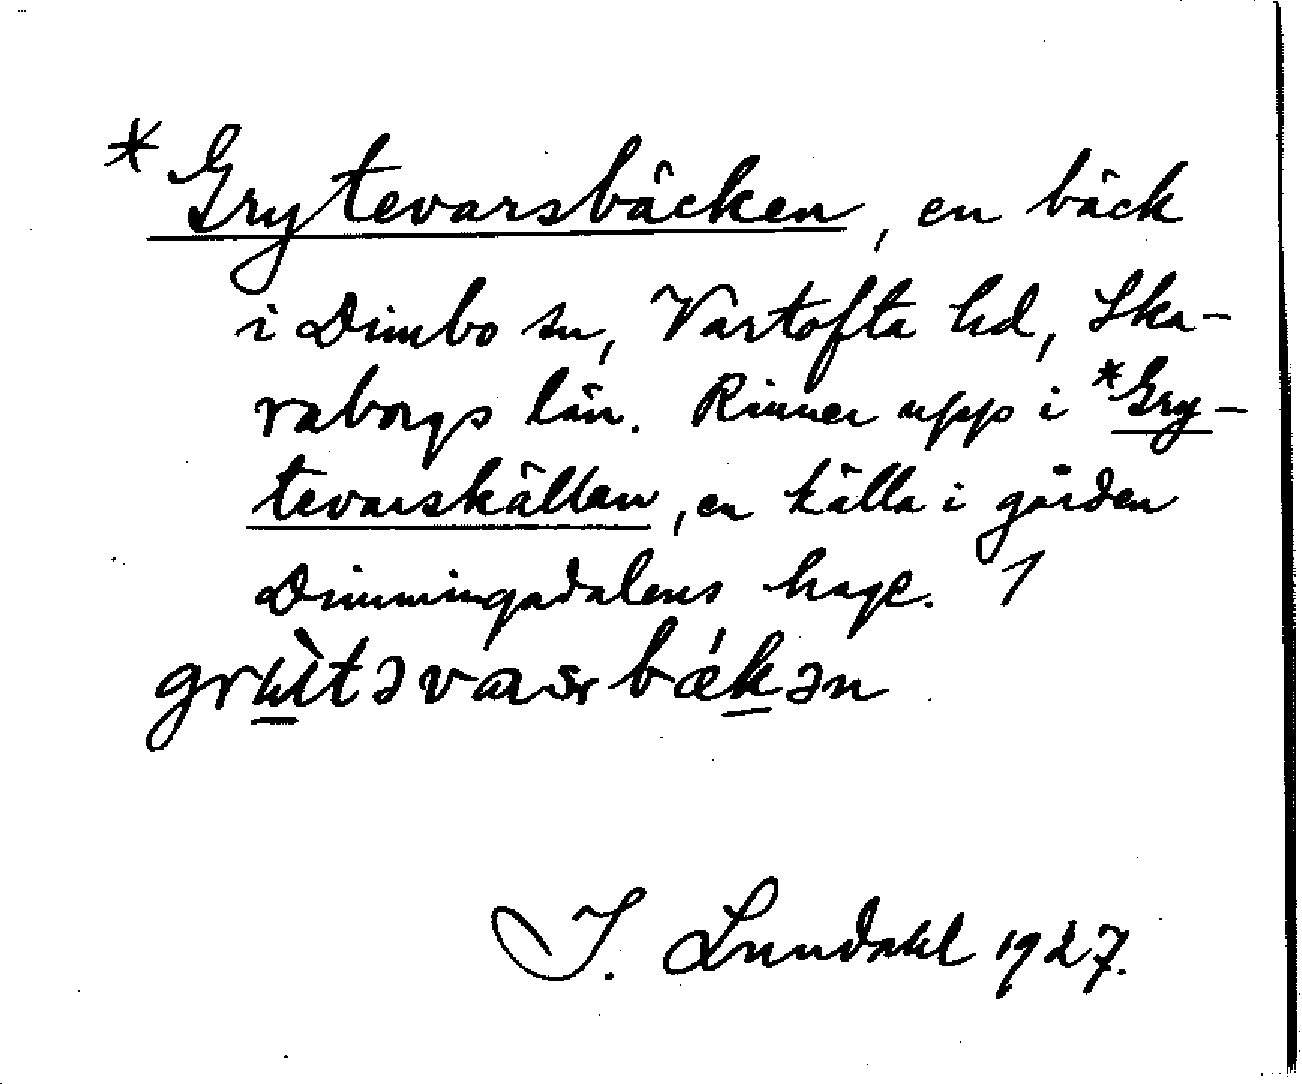 *Grytevarsbäcken, en bäck
i Dimbo sn, Vartofta hd, Ska-
raborgs län. Rinner upp i *Gry-
tevarskällan, en källa i gården
Dimmingsdalens hage. 1

I. Lundahl 1927.